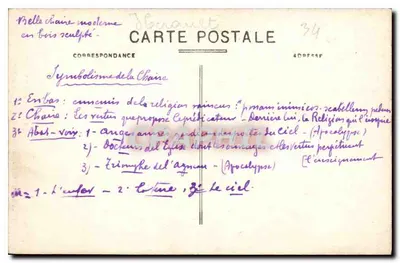 Belle chaire moderne
en bois sculpté.
34
CARTE POSTALE
CORRESPONDANCE
ADRESSE
Symbolisme de la Chaire
1° En bas: ennemis de la religion vaincus: "ponam inimicos scabellum pedum
2° Chaire: Les vertus que propose le prédicateur - Derrière lui, la Religion qui l'inspire
3° Abat-voix: 1- ange ciel - (Apocalypse)
2) - Docteurs de l'Eglise dont les et les vertus perpétuent
l'enseignement
3) - Triomphe de l'agneau - (Apocalypse)
= 1 - L'enfer - 2° la terre, 3° Le ciel.